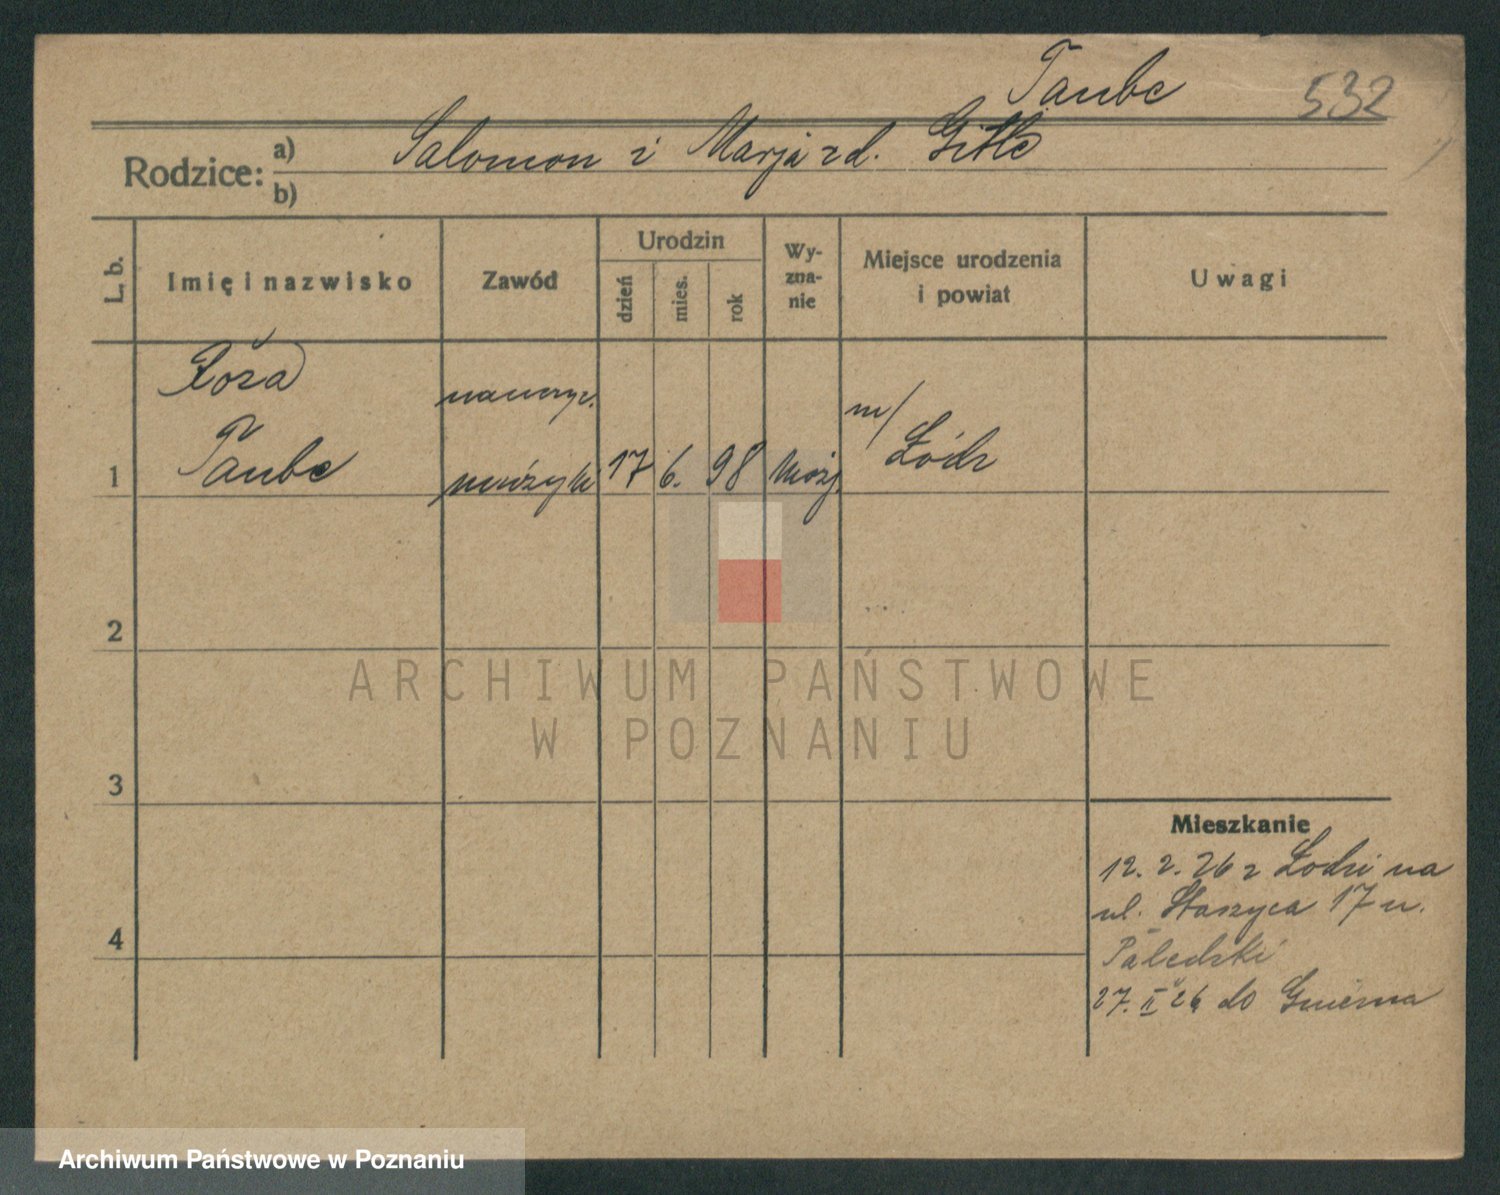 Taube
532
Rodzice: a) Salomon i Marja z d. Gitle
b)
L. b.
Imię i nazwisko
Zawód
Urodzin
dzień
mies.
rok
Wy-
zna-
nie
Miejsce urodzenia
i powiat
Uwagi
Róża
nauczyc.
m/
Łódz
1
Taube
muzyki
17
6.
98
Mojż.
2
ARCHIWUM PAŃSTWOWE
W POZNANIU
3
Mieszkanie
12. 2. 26 z Łodzi na
ul. Staszyca 17 u.
4
27. II 26 do
Archiwum Państwowe w Poznaniu